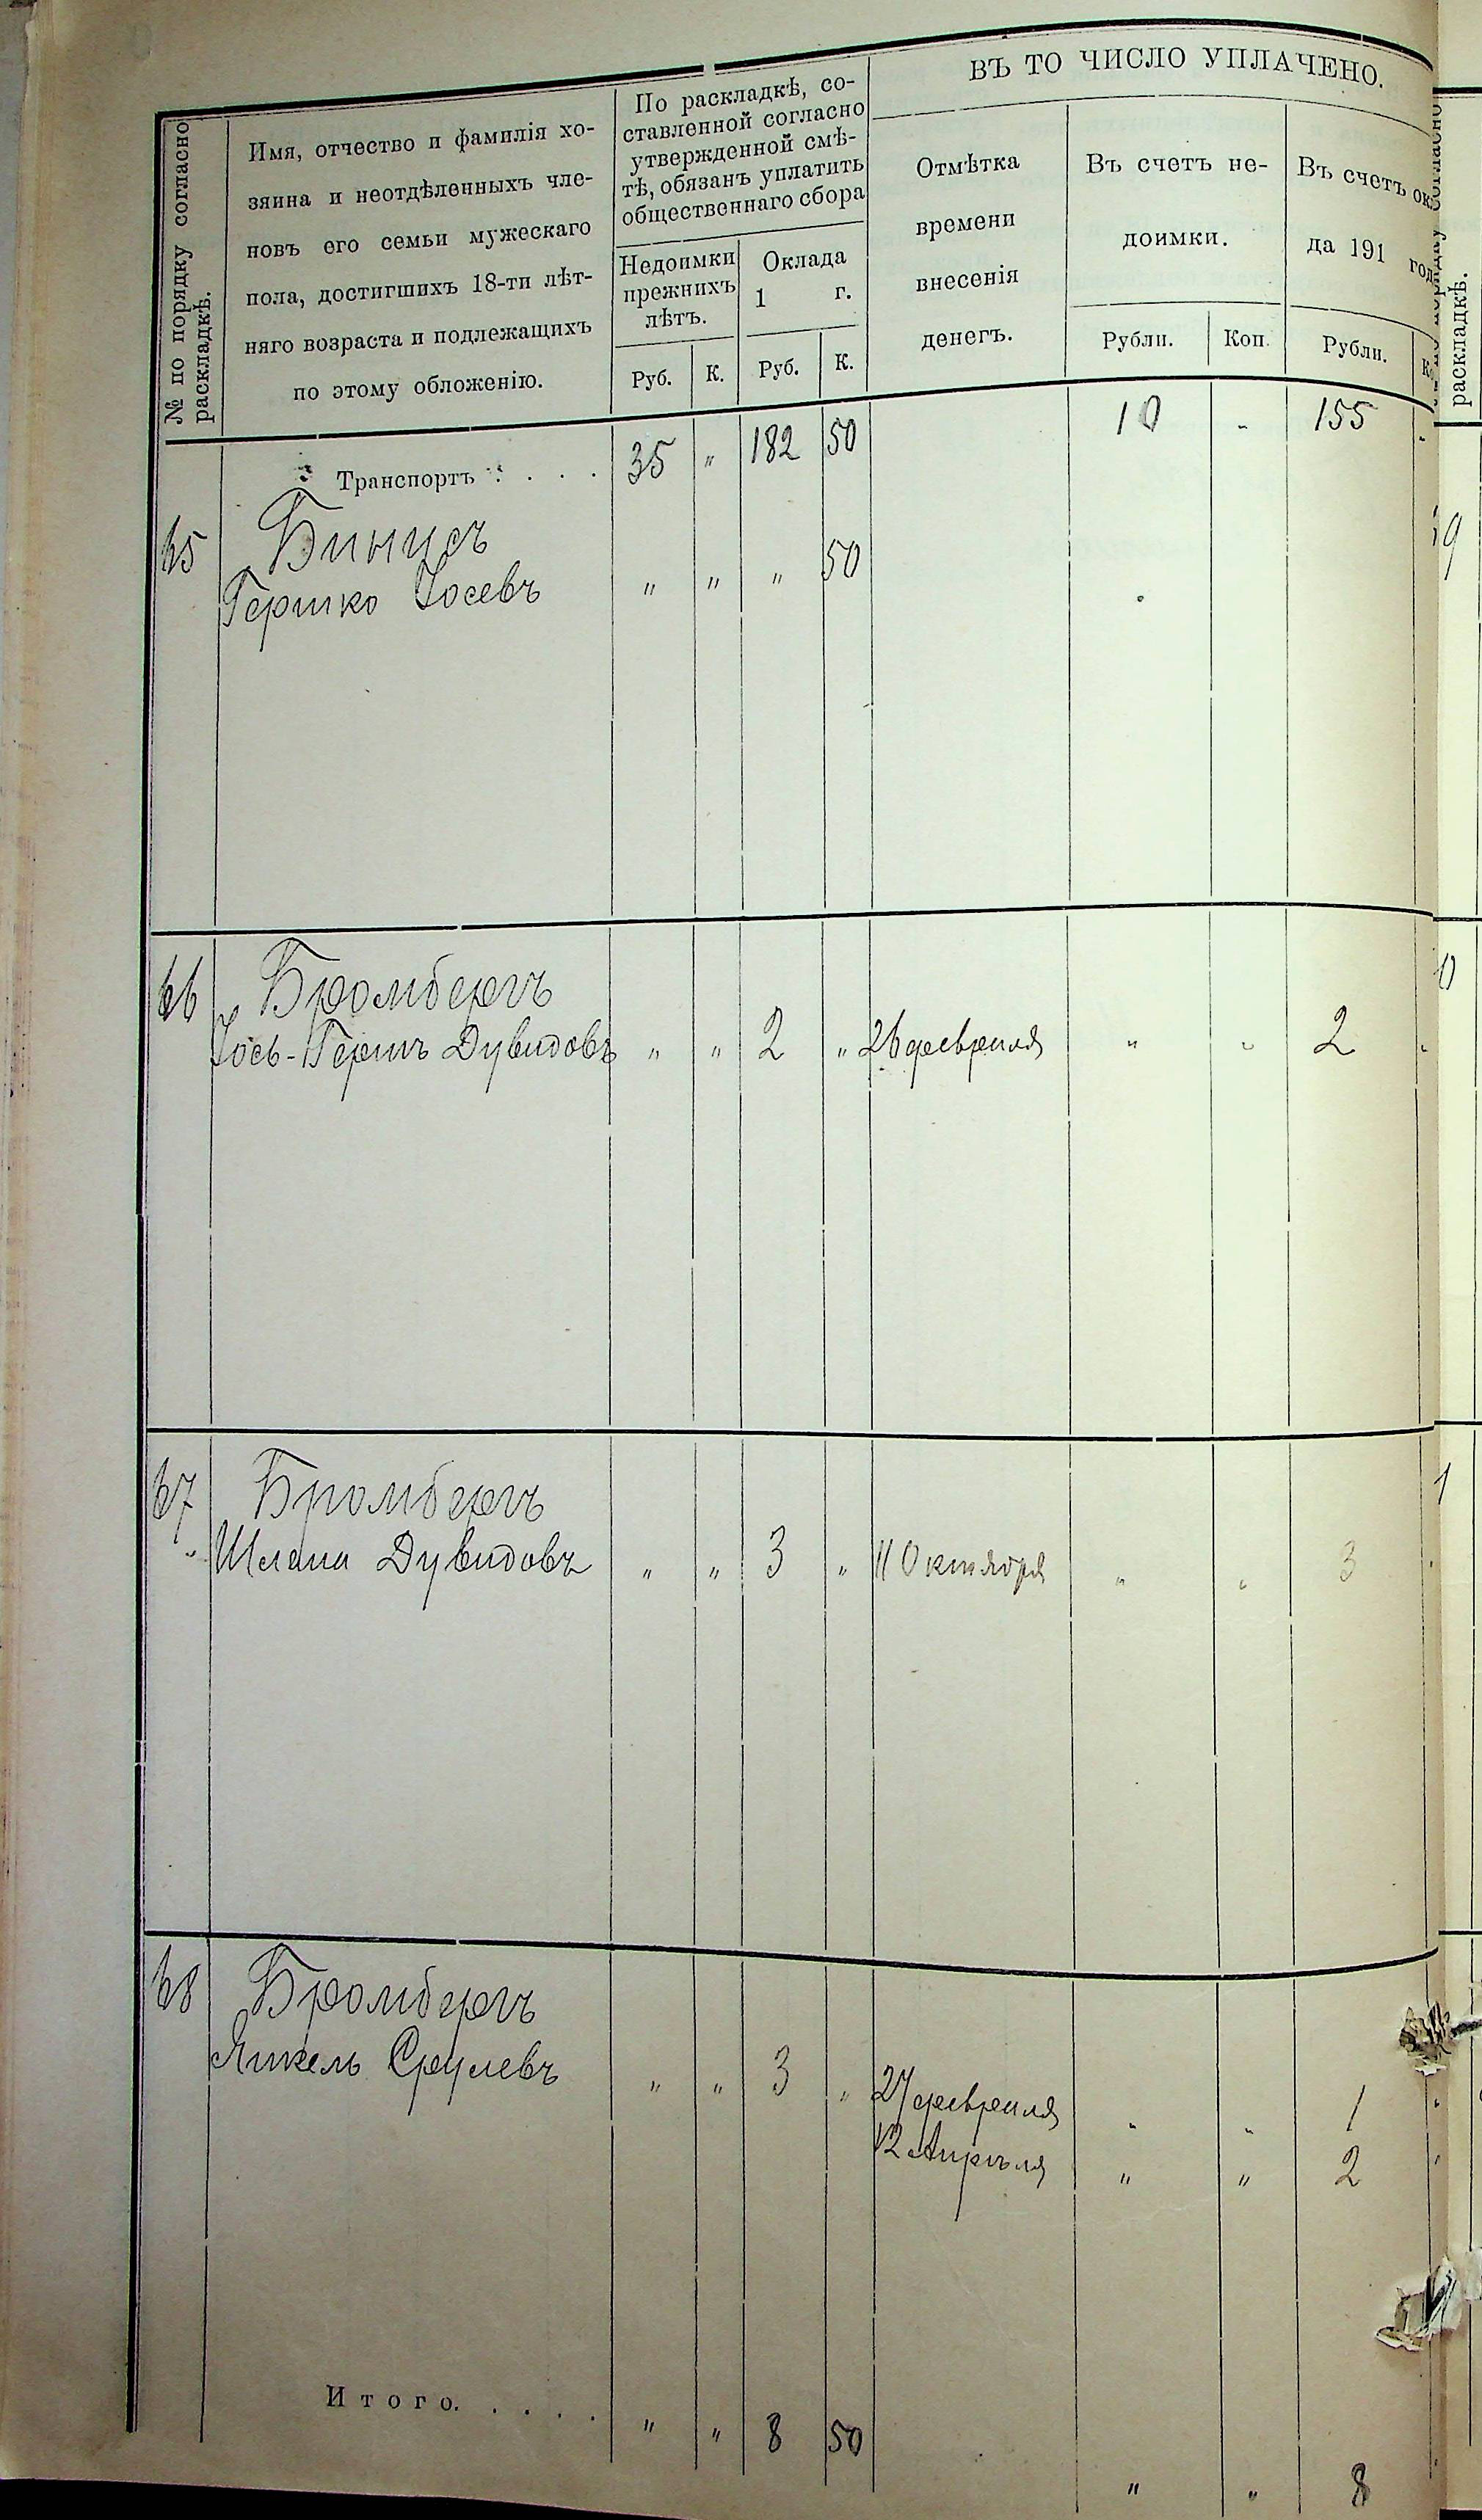 № по порядку согласно
раскладкѣ.
Имя, отчество и фамилія хо-
зяина и неотдѣленныхъ чле-
новъ его семьи мужескаго
пола, достигшихъ 18-ти лѣт-
няго возраста и подлежащихъ
по этому обложенію.
По раскладкѣ, со-
ставленной согласно
утвержденной смѣ-
тѣ, обязанъ уплатить
общественнаго сбора
Недоимки
прежнихъ
лѣтъ.
Оклада
1 г.
Руб. К. Руб. К.
ВЪ ТО ЧИСЛО УПЛАЧЕНО.
Отмѣтка
времени
внесенія
денегъ.
Въ счетъ не-
доимки.
Рубли. Коп.
Въ счетъ ок
да 191 год
Рубли. К
Транспортъ . . . . 35 " 182 50 10 - 155 -
65 Бинусъ
Гершко Іосевъ " " " 50
66 Бромбергъ
Іось-Гершъ Дувидовъ " " 2 " 26 февраля " " 2 "
67 Бромбергъ
Шлема Дувидовъ " " 3 " 11 Октября " " 3 "
68 Бромбергъ
Янкель Срулевъ " " 3 " 27 февраля " " 1 "
12 Апрѣля " " 2 "
Итого. . . . . " " 8 50 " " 8
раскладкѣ.